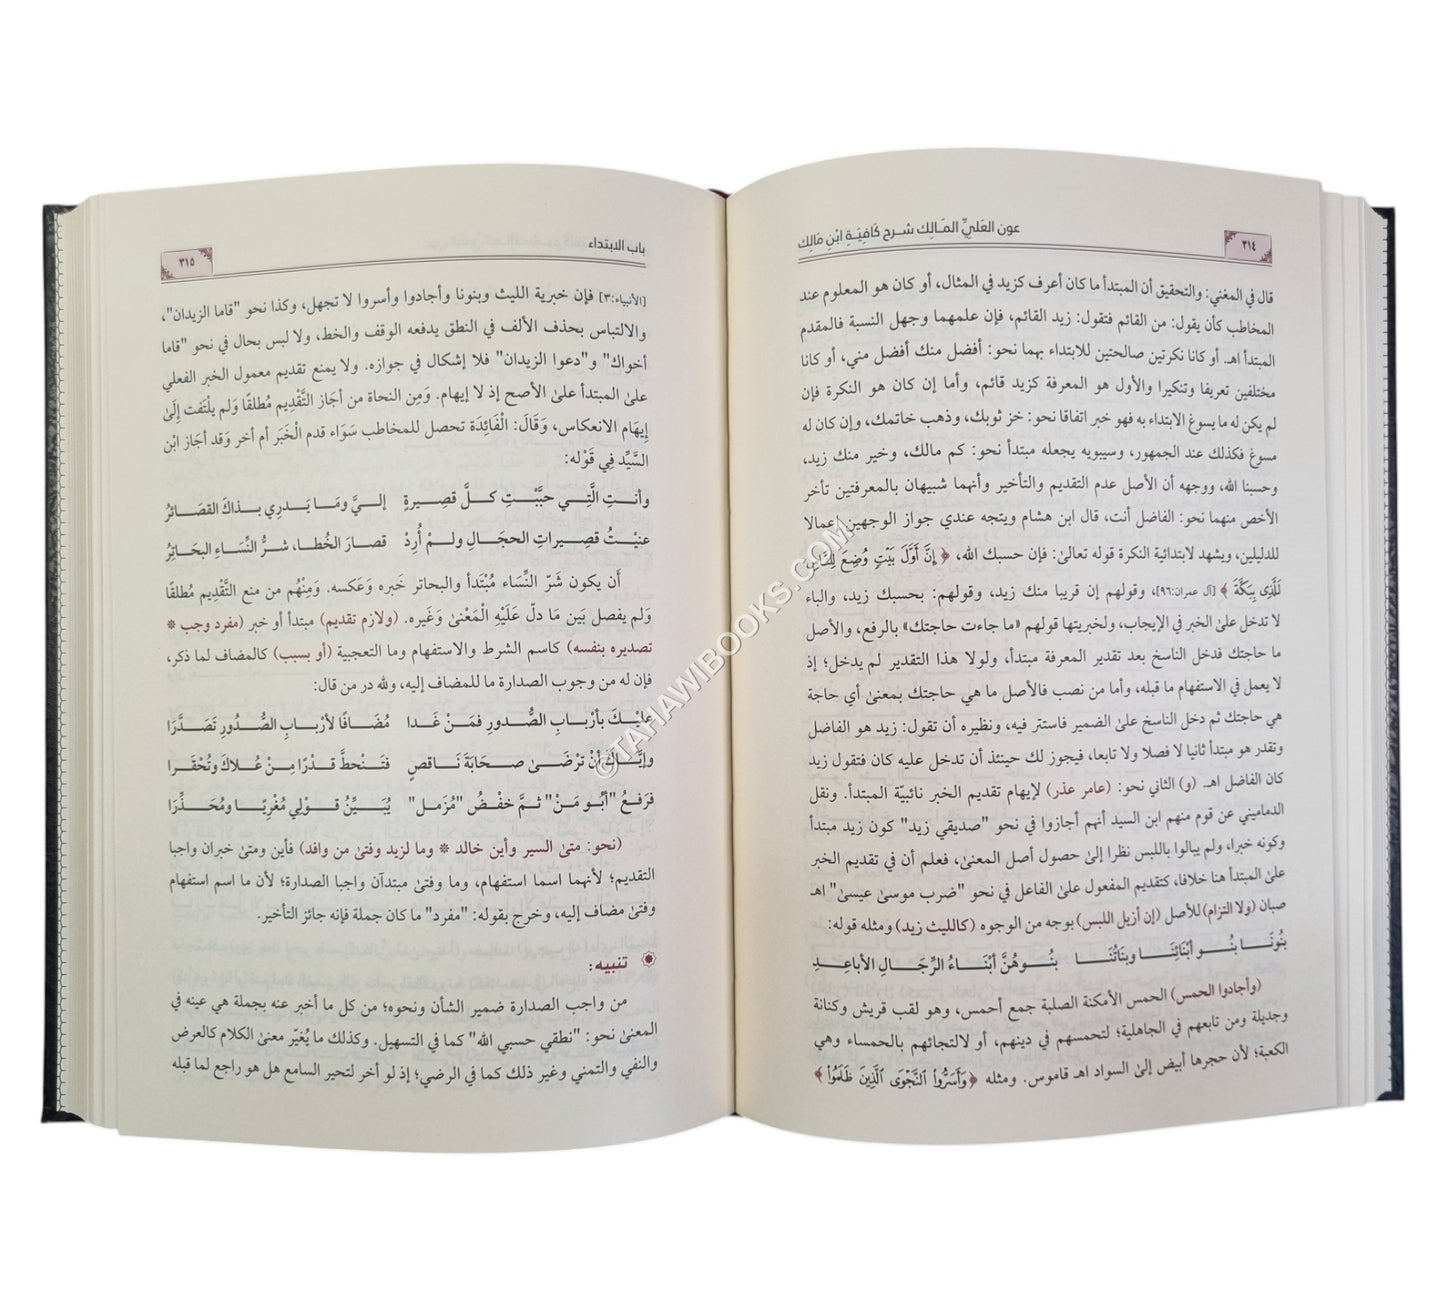 ٣١٤
عون العَلِيِّ المَالِك شرح كَافِيَةِ ابْنِ مَالِك
قال في المغني: والتحقيق أن المبتدأ ما كان أعرف كزيد في المثال، أو كان هو المعلوم عند
المخاطب كأن يقول: من القائم فتقول: زيد القائم، فإن علمهما وجهل النسبة فالمقدم
المبتدأ اهـ. أو كانا نكرتين صالحتين للابتداء بهما نحو: أفضل منك أفضل مني، أو كانا
مختلفين تعريفا وتنكيرا والأول هو المعرفة كزيد قائم، وأما إن كان هو النكرة فإن
لم يكن له ما يسوغ الابتداء به فهو خبر اتفاقا نحو: خز ثوبك، وذهب خاتمك، وإن كان له
مسوغ فكذلك عند الجمهور، وسيبويه يجعله مبتدأ نحو: كم مالك، وخير منك زيد،
وحسبنا الله، ووجهه أن الأصل عدم التقديم والتأخير وأنهما شبيهان بالمعرفتين تأخر
الأخص منهما نحو: الفاضل أنت، قال ابن هشام ويتجه عندي جواز الوجهين إعمالا
للدليلين، ويشهد لابتدائية النكرة قوله تعالىٰ: فإن حسبك الله، ﴿ إِنَّ أَوَّلَ بَيْتٍ وُضِعَ لِلنَّاسِ
لَلَّذِى بِبَكَّةَ ﴾ [آل عمران:٩٦]، وقولهم إن قريبا منك زيد، وقولهم: بحسبك زيد، والباء
لا تدخل علىٰ الخبر في الإيجاب، ولخبريتها قولهم «ما جاءت حاجتك» بالرفع، والأصل
ما حاجتك فدخل الناسخ بعد تقدير المعرفة مبتدأ، ولولا هذا التقدير لم يدخل؛ إذ
لا يعمل في الاستفهام ما قبله، وأما من نصب فالأصل ما هي حاجتك بمعنىٰ أي حاجة
هي حاجتك ثم دخل الناسخ علىٰ الضمير فاستتر فيه، ونظيره أن تقول: زيد هو الفاضل
وتقدر هو مبتدأ ثانيا لا فصلا ولا تابعا، فيجوز لك حينئذ أن تدخل عليه كان فتقول زيد
كان الفاضل اهـ. (و) الثاني نحو: (عامر عذر) لإيهام تقديم الخبر نائبيّة المبتدأ. ونقل
الدماميني عن قوم منهم ابن السيد أنهم أجازوا في نحو "صديقي زيد" كون زيد مبتدأ
وكونه خبرا، ولم يبالوا باللبس نظرا إلىٰ حصول أصل المعنىٰ، فعلم أن في تقديم الخبر
علىٰ المبتدأ هنا خلافا، كتقديم المفعول علىٰ الفاعل في نحو "ضرب موسىٰ عيسىٰ" اهـ
صبان (ولا التزام) للأصل (إن أزيل اللبس) بوجه من الوجوه (كالليث زيد) ومثله قوله:
بنُونَـا بنُـو أبْنَائِنَا وبنَاتُنَا    بنُـوهُنَّ أبْنَـاءُ الرِّجَالِ الأباعِدِ
(وأجادوا الحمس) الحمس الأمكنة الصلبة جمع أحمس، وهو لقب قريش وكنانة
وجديلة ومن تابعهم في الجاهلية؛ لتحمسهم في دينهم، أو لالتجائهم بالحمساء وهي
الكعبة؛ لأن حجرها أبيض إلىٰ السواد اهـ قاموس. ومثله ﴿ وَأَسَرُّوا۟ ٱلنَّجْوَى ٱلَّذِينَ ظَلَمُوا۟ ﴾
باب الابتداء
٣١٥
[الأنبياء:٣] فإن خبرية الليث وبنونا وأجادوا وأسروا لا تجهل، وكذا نحو "قاما الزيدان"،
والالتباس بحذف الألف في النطق يدفعه الوقف والخط، ولا لبس بحال في نحو "قاما
أخواك" و"دعوا الزيدان" فلا إشكال في جوازه. ولا يمنع تقديم معمول الخبر الفعلي
علىٰ المبتدأ علىٰ الأصح إذ لا إيهام. وَمِن النحاة من أجَاز التَّقْدِيم مُطلقًا وَلم يلْتَفت إِلَىٰ
إيهَام الانعكاس، وَقَالَ: الْفَائِدَة تحصل للمخاطب سَوَاء قدم الْخَبَر أم أخر وَقد أجَاز ابْن
السَّيِّد فِي قَوْله:
وأنتِ الَّتِـي حبَّبْتِ كـلَّ قصِـيرةٍ    إلـيَّ ومَـا يَـدرِي بـذاكَ القصَـائرُ
عنيْتُ قصِيراتِ الحجَـالِ ولـمْ أُرِدْ    قصارَ الخُطـا، شرُّ النِّسَـاءِ البحَـاتِرُ
أَن يكون شَرّ النِّسَاء مُبْتَدأ والبحاتر خَبره وَعَكسه. وَمِنْهُم من منع التَّقْدِيم مُطلقًا
وَلم يفصل بَين مَا دلّ عَلَيْهِ الْمَعْنىٰ وَغَيره. (ولازم تقديم) مبتدأ أو خبر (مفرد وجب ❊
تصديره بنفسه) كاسم الشرط والاستفهام وما التعجبية (أو بسبب) كالمضاف لما ذكر،
فإن له من وجوب الصدارة ما للمضاف إليه، ولله در من قال:
عليْـكَ بأرْبـابِ الصُّـدورِ فمَـنْ غَـدا    مُضَـافًا لأرْبـابِ الصُّـدُورِ تَصَـدَّرَا
وإيَّـاكَ أنْ تَرْضَـىٰ صـحَابَةَ نَـاقصٍ    فتَـنْحطَّ قـدْرًا مـنْ عُـلاكَ وتُحْقَـرا
فرَفـعُ "أبُـو مَـنْ" ثـمَّ خفْـضُ "مُزمـل"    يُبَـيِّنُ قـولِي مُغْرِيًـا ومُحَـذِّرَا
(نحو: متىٰ السير وأين خالد ❊ وما لزيد وفتىٰ من وافد) فأين ومتىٰ خبران واجبا
التقديم؛ لأنهما اسما استفهام، وما وفتىٰ مبتدآن واجبا الصدارة؛ لأن ما اسم استفهام
وفتىٰ مضاف إليه، وخرج بقوله: "مفرد" ما كان جملة فإنه جائز التأخير.
تنبيه:
من واجب الصدارة ضمير الشأن ونحوه؛ من كل ما أخبر عنه بجملة هي عينه في
المعنىٰ نحو: "نطقي حسبي الله" كما في التسهيل. وكذلك ما يُغيّر معنىٰ الكلام كالعرض
والنفي والتمني وغير ذلك كما في الرضي؛ إذ لو أخر لتحير السامع هل هو راجع لما قبله
©TAHAWIBOOKS.COM